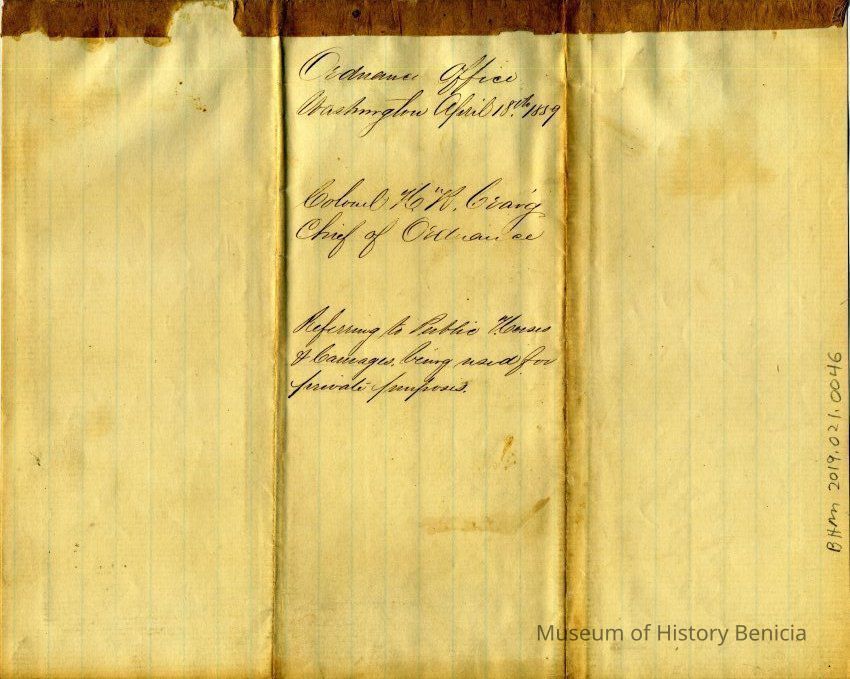 Ordnance Office
Washington April 18th 1859
Colonel H. K. Craig
Chief of Ordnance
Referring to Public Horses
& Carriages, being used for
private purposes.
BHM 2019.021.0046
Museum of History Benicia